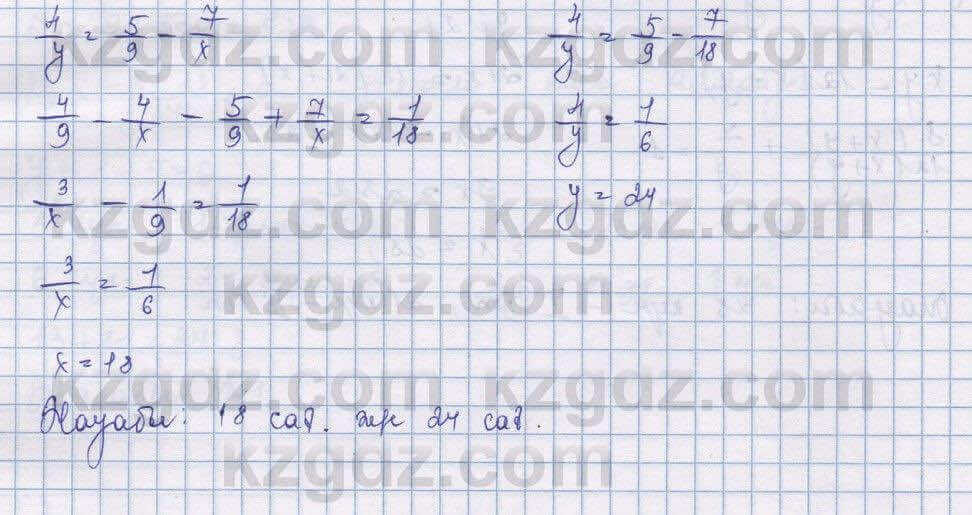 4/y = 5/9 - 7/x
4/9 - 4/x - 5/9 + 7/x = 1/18
3/x - 1/9 = 1/18
3/x = 1/6
x = 18
4/y = 5/9 - 7/18
4/y = 1/6
y = 24
Жауабы: 18 сағ. жж 24 сағ.
kzgdz.com
kzgdz.com
kzgdz.com
kzgdz.com
kzgdz.com
kzgdz.com
kzgdz.com
kzgdz.com
kzgdz.com